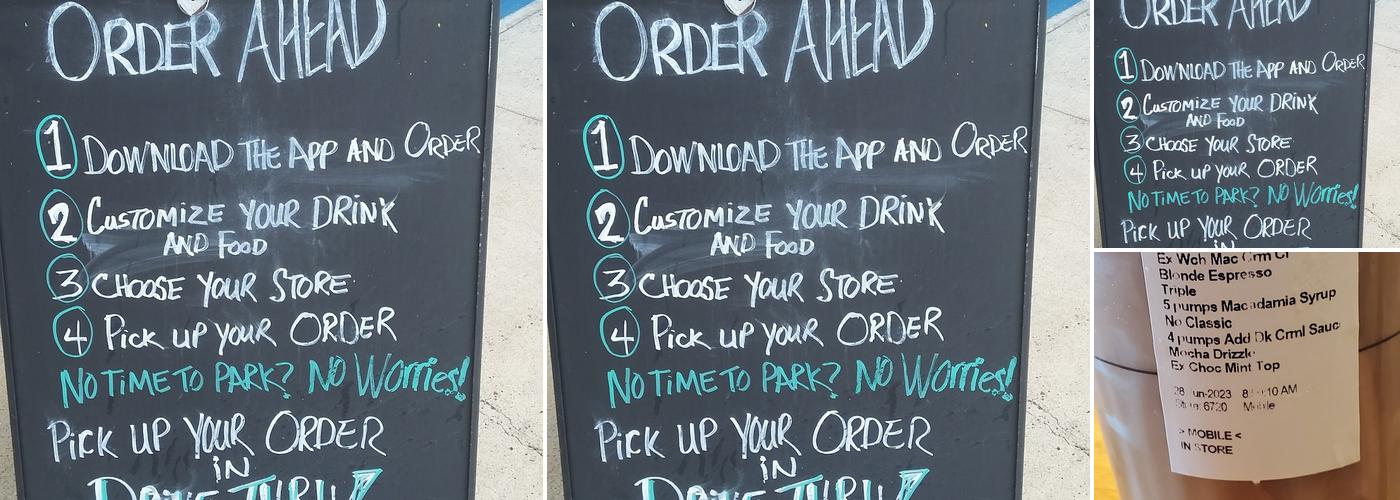 ORDER AHEAD
1 DOWNLOAD THE APP AND ORDER
2 CUSTOMIZE YOUR DRINK
AND FOOD
3 CHOOSE YOUR STORE
4 Pick up your ORDER
NO TIME TO PARK? NO Worries!
Pick UP YOUR ORDER
iN
DRIVE THRU
ORDER AHEAD
1 DOWNLOAD THE APP AND ORDER
2 CUSTOMIZE YOUR DRINK
AND FOOD
3 CHOOSE YOUR STORE
4 Pick up your ORDER
NO TIME TO PARK? NO Worries!
Pick UP YOUR ORDER
iN
DRIVE THRU
ORDER AHEAD
1 DOWNLOAD THE APP AND ORDER
2 CUSTOMIZE YOUR DRINK
AND FOOD
3 CHOOSE YOUR STORE
4 Pick up your ORDER
NO TIME TO PARK? NO Worries!
Pick UP YOUR ORDER
iN
Ex Wch Mac Crm
Blonde Espresso
Triple
5 pumps Macadamia Syrup
No Classic
4 pumps Add Dk Crml Sauc
Mocha Drizzle
Ex Choc Mint Top
28 AM
6720 Mobile
> MOBILE <
IN STORE